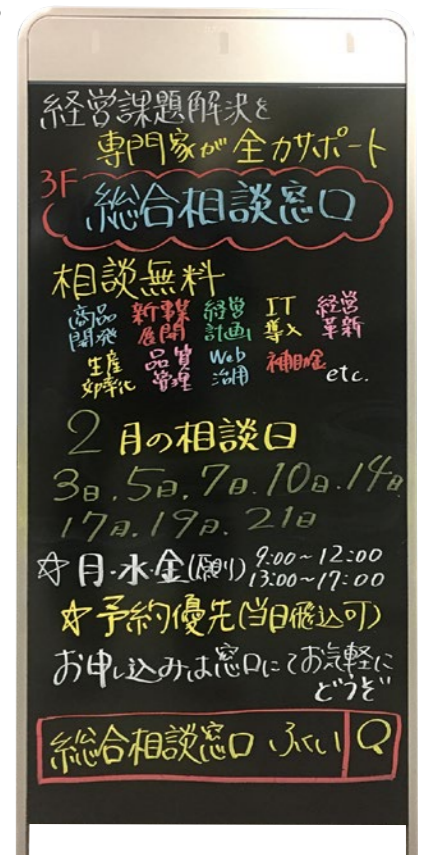 経営課題解決を
専門家が全力サポート
3F
総合相談窓口
相談無料
商品開発 新事業展開 経営計画 IT導入 経営革新
生産効率化 品質管理 Web活用 補助金 etc.
2月の相談日
3日.5日.7日.10日.14日
17日.19日.21日
☆月・水・金(原則) 9:00~12:00
13:00~17:00
☆予約優先(当日飛込可)
お申し込みは窓口にてお気軽に
どうぞ
総合相談窓口 ふくい Q